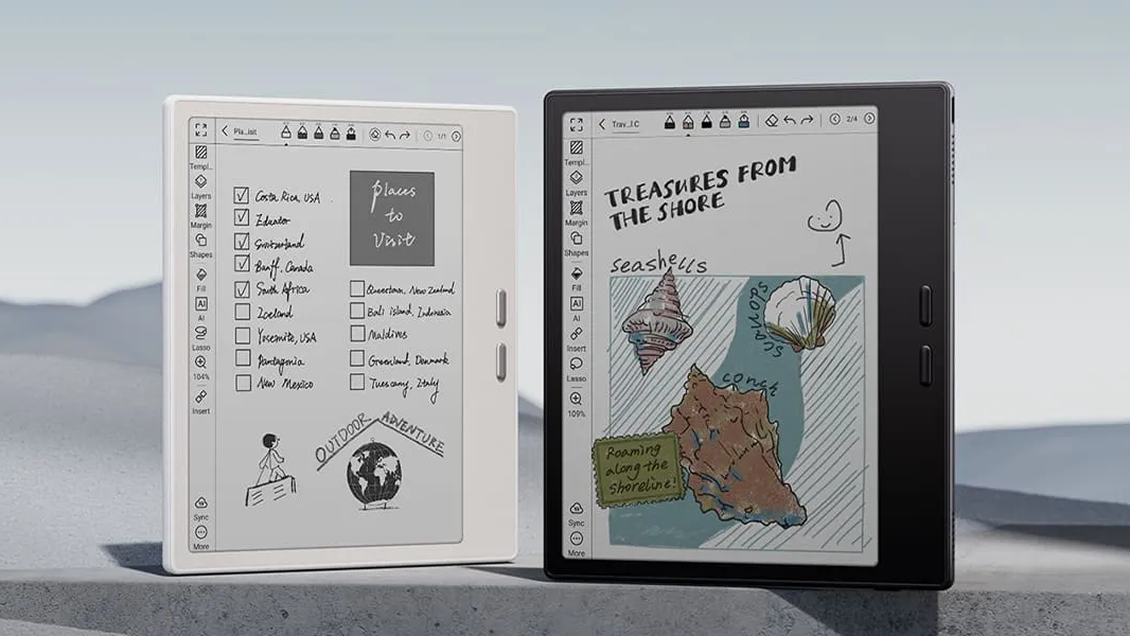 Pla...isit
1/1
Templ...
Layers
Margin
Shapes
Fill
AI
AI
Lasso
104%
Insert
Sync
More
Places
to
Visit
Costa Rica, USA
Switzerland
Banff, Canada
South Africa
Iceland
Yosemite, USA
New Mexico
New Zealand
Bali island, Indonesia
Maldives
Greenland, Denmark
Tuescany, Italy
OUTDOOR ADVENTURE
Trav...l C
2/4
Templ...
Layers
Margin
Shapes
Fill
AI
AI
Insert
Lasso
109%
Sync
More
TREASURES FROM
THE SHORE
seashells
scallops
conch
Roaming
along the
shoreline!